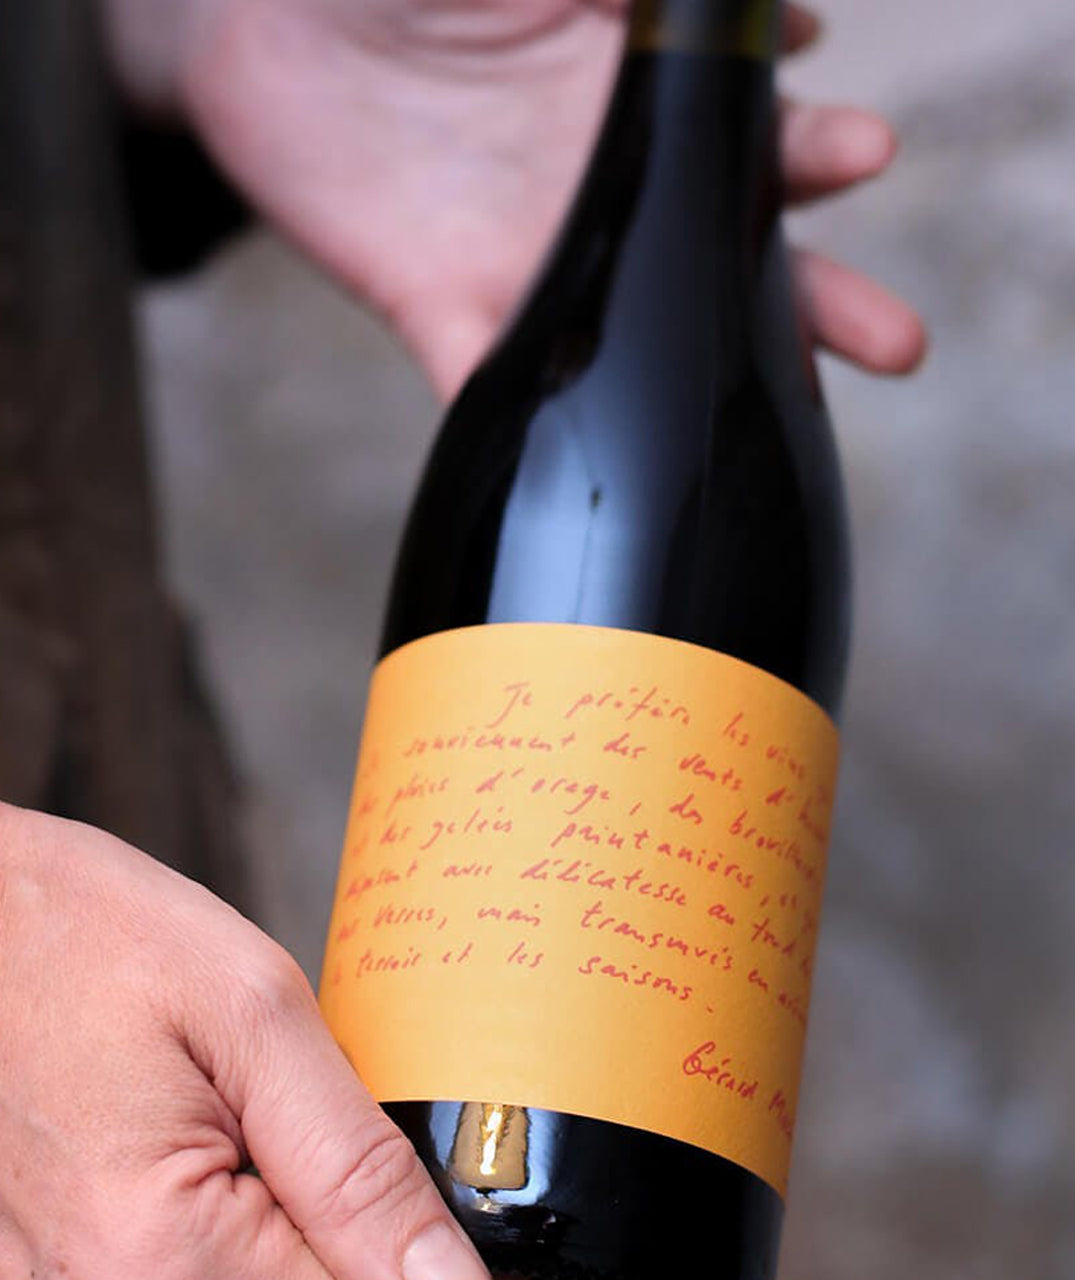 Je préfère les vins
se souviennent des vents d'
des pluies d'orage, des brouillards
et des gelées printanières, et
déposent avec délicatesse au fond
des verres, mais transmués en
le terroir et les saisons.
Gérard